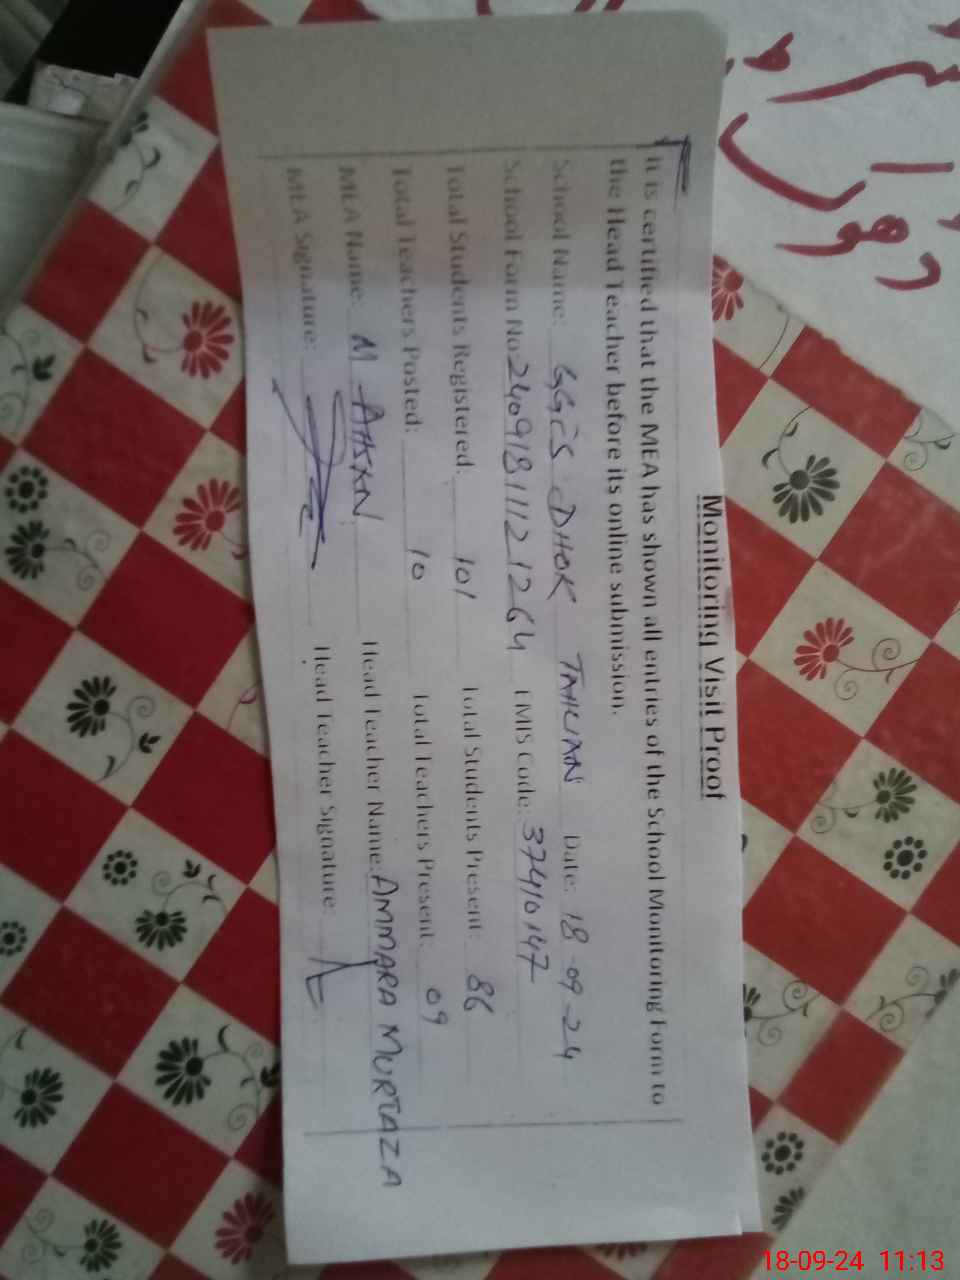 Monitoring Visit Proof
It is certified that the MEA has shown all entries of the School Monitoring Form to
the Head Teacher before its online submission.
School Name: GGES DHOK Date: 18-09-24
School Form No 24091811121264 EMIS Code: 37410147
Total Students Registered: 101 Total Students Present: 86
Total Teachers Posted: 10 Total Teachers Present: 09
MEA Name: M Head Teacher Name: AMMARA MURTAZA
MEA Signature: Head Teacher Signature:
18-09-24 11:13